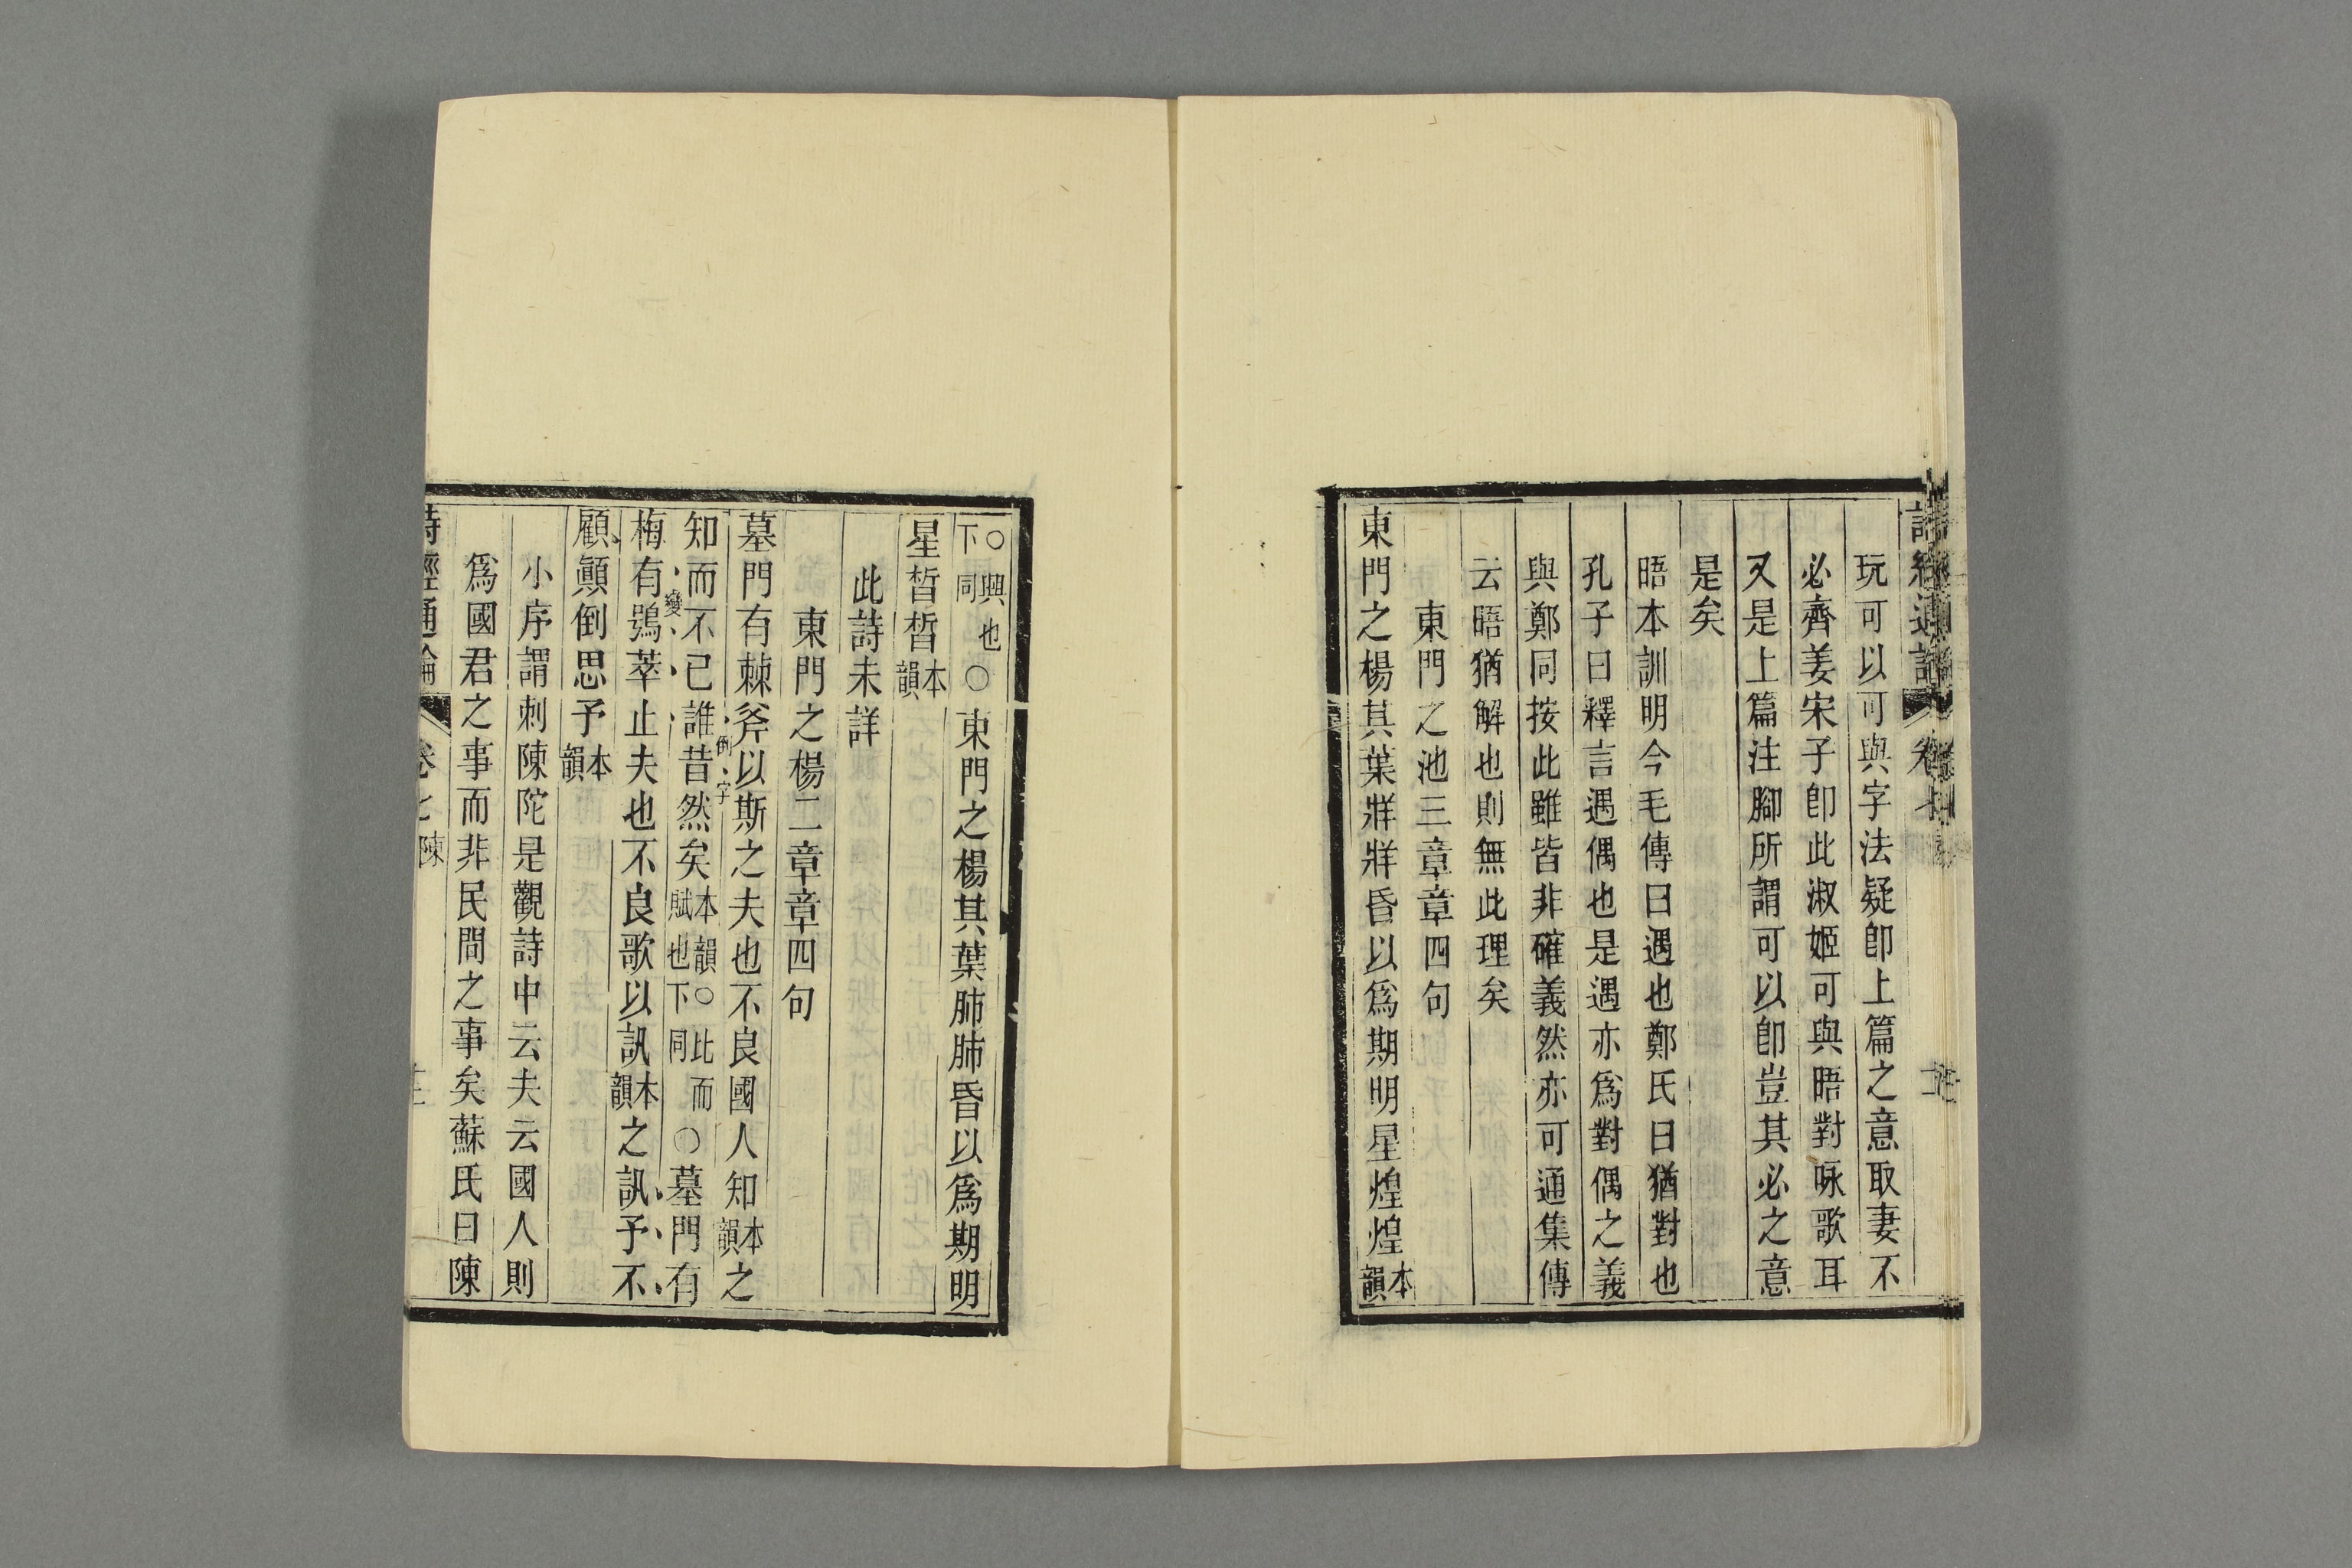 詩經通論 卷七
玩可以可與字法疑卽上篇之意取妻不
必齊姜宋子卽此淑姬可與晤對咏歌耳
又是上篇注腳所謂可以卽豈其必之意
是矣
晤本訓明今毛傳曰遇也鄭氏曰猶對也
孔子曰釋言遇偶也是遇亦爲對偶之義
與鄭同按此雖皆非確義然亦可通集傳
云晤猶解也則無此理矣
東門之池三章章四句
東門之楊其葉牂牂昏以爲期明星煌煌本韻
○興也下同○東門之楊其葉肺肺昏以爲期明
星晳晳本韻
此詩未詳
東門之楊二章章四句
墓門有棘斧以斯之夫也不良國人知本韻之
倒字
知而不已誰昔然矣本韻○此而賦也下同○墓門有
變
梅有鴞萃止夫也不良歌以訊本韻之訊予不
顧顚倒思予本韻
小序謂刺陳陀是觀詩中云夫云國人則
爲國君之事而非民間之事矣蘇氏曰陳
詩經通論 卷七陳